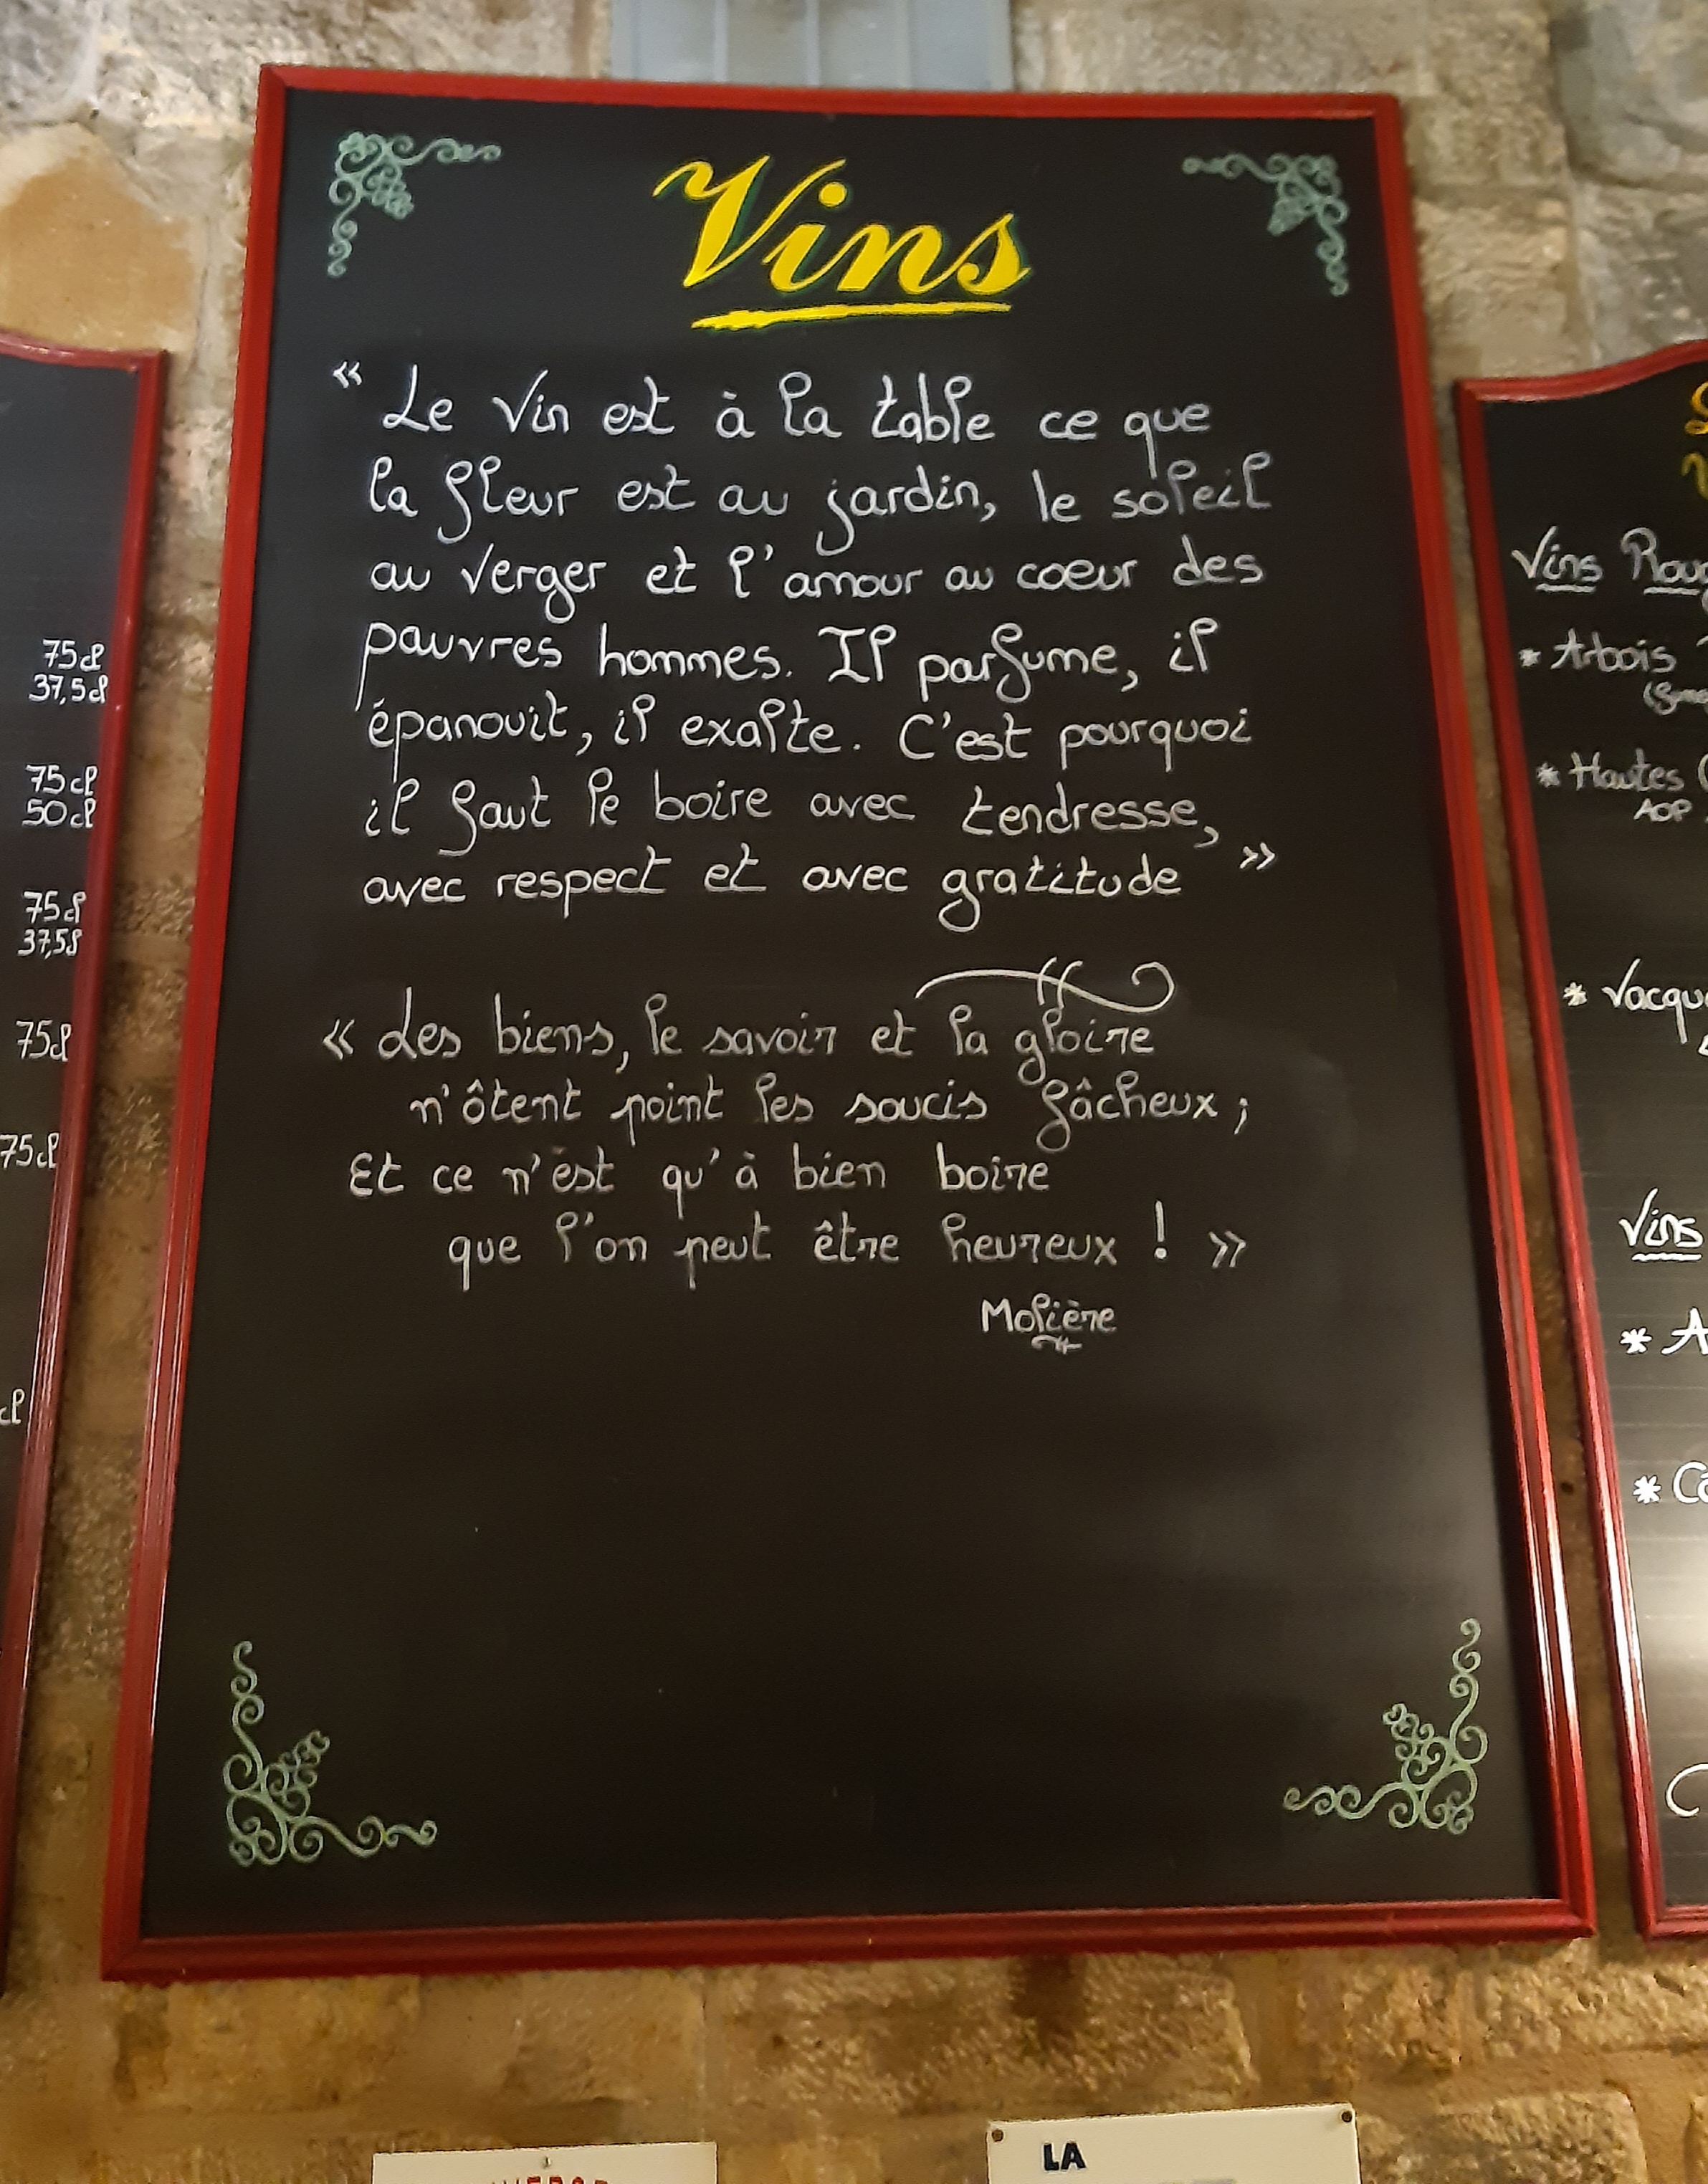 Vins
« Le Vin est à la table ce que
la fleur est au jardin, le soleil
au verger et l'amour au coeur des
pauvres hommes. Il parfume, il
épanouit, il exalte. C'est pourquoi
il faut le boire avec tendresse,
avec respect et avec gratitude »
« Les biens, le savoir et la gloire
n'ôtent point les soucis fâcheux ;
Et ce n'est qu'à bien boire
que l'on peut être heureux ! »
Molière
75cl
37,5cl
75cl
50cl
75cl
37,5l
75cl
75cl
cl
Vins
* Arbois
* Hautes
AOP
Vins
* A
LA